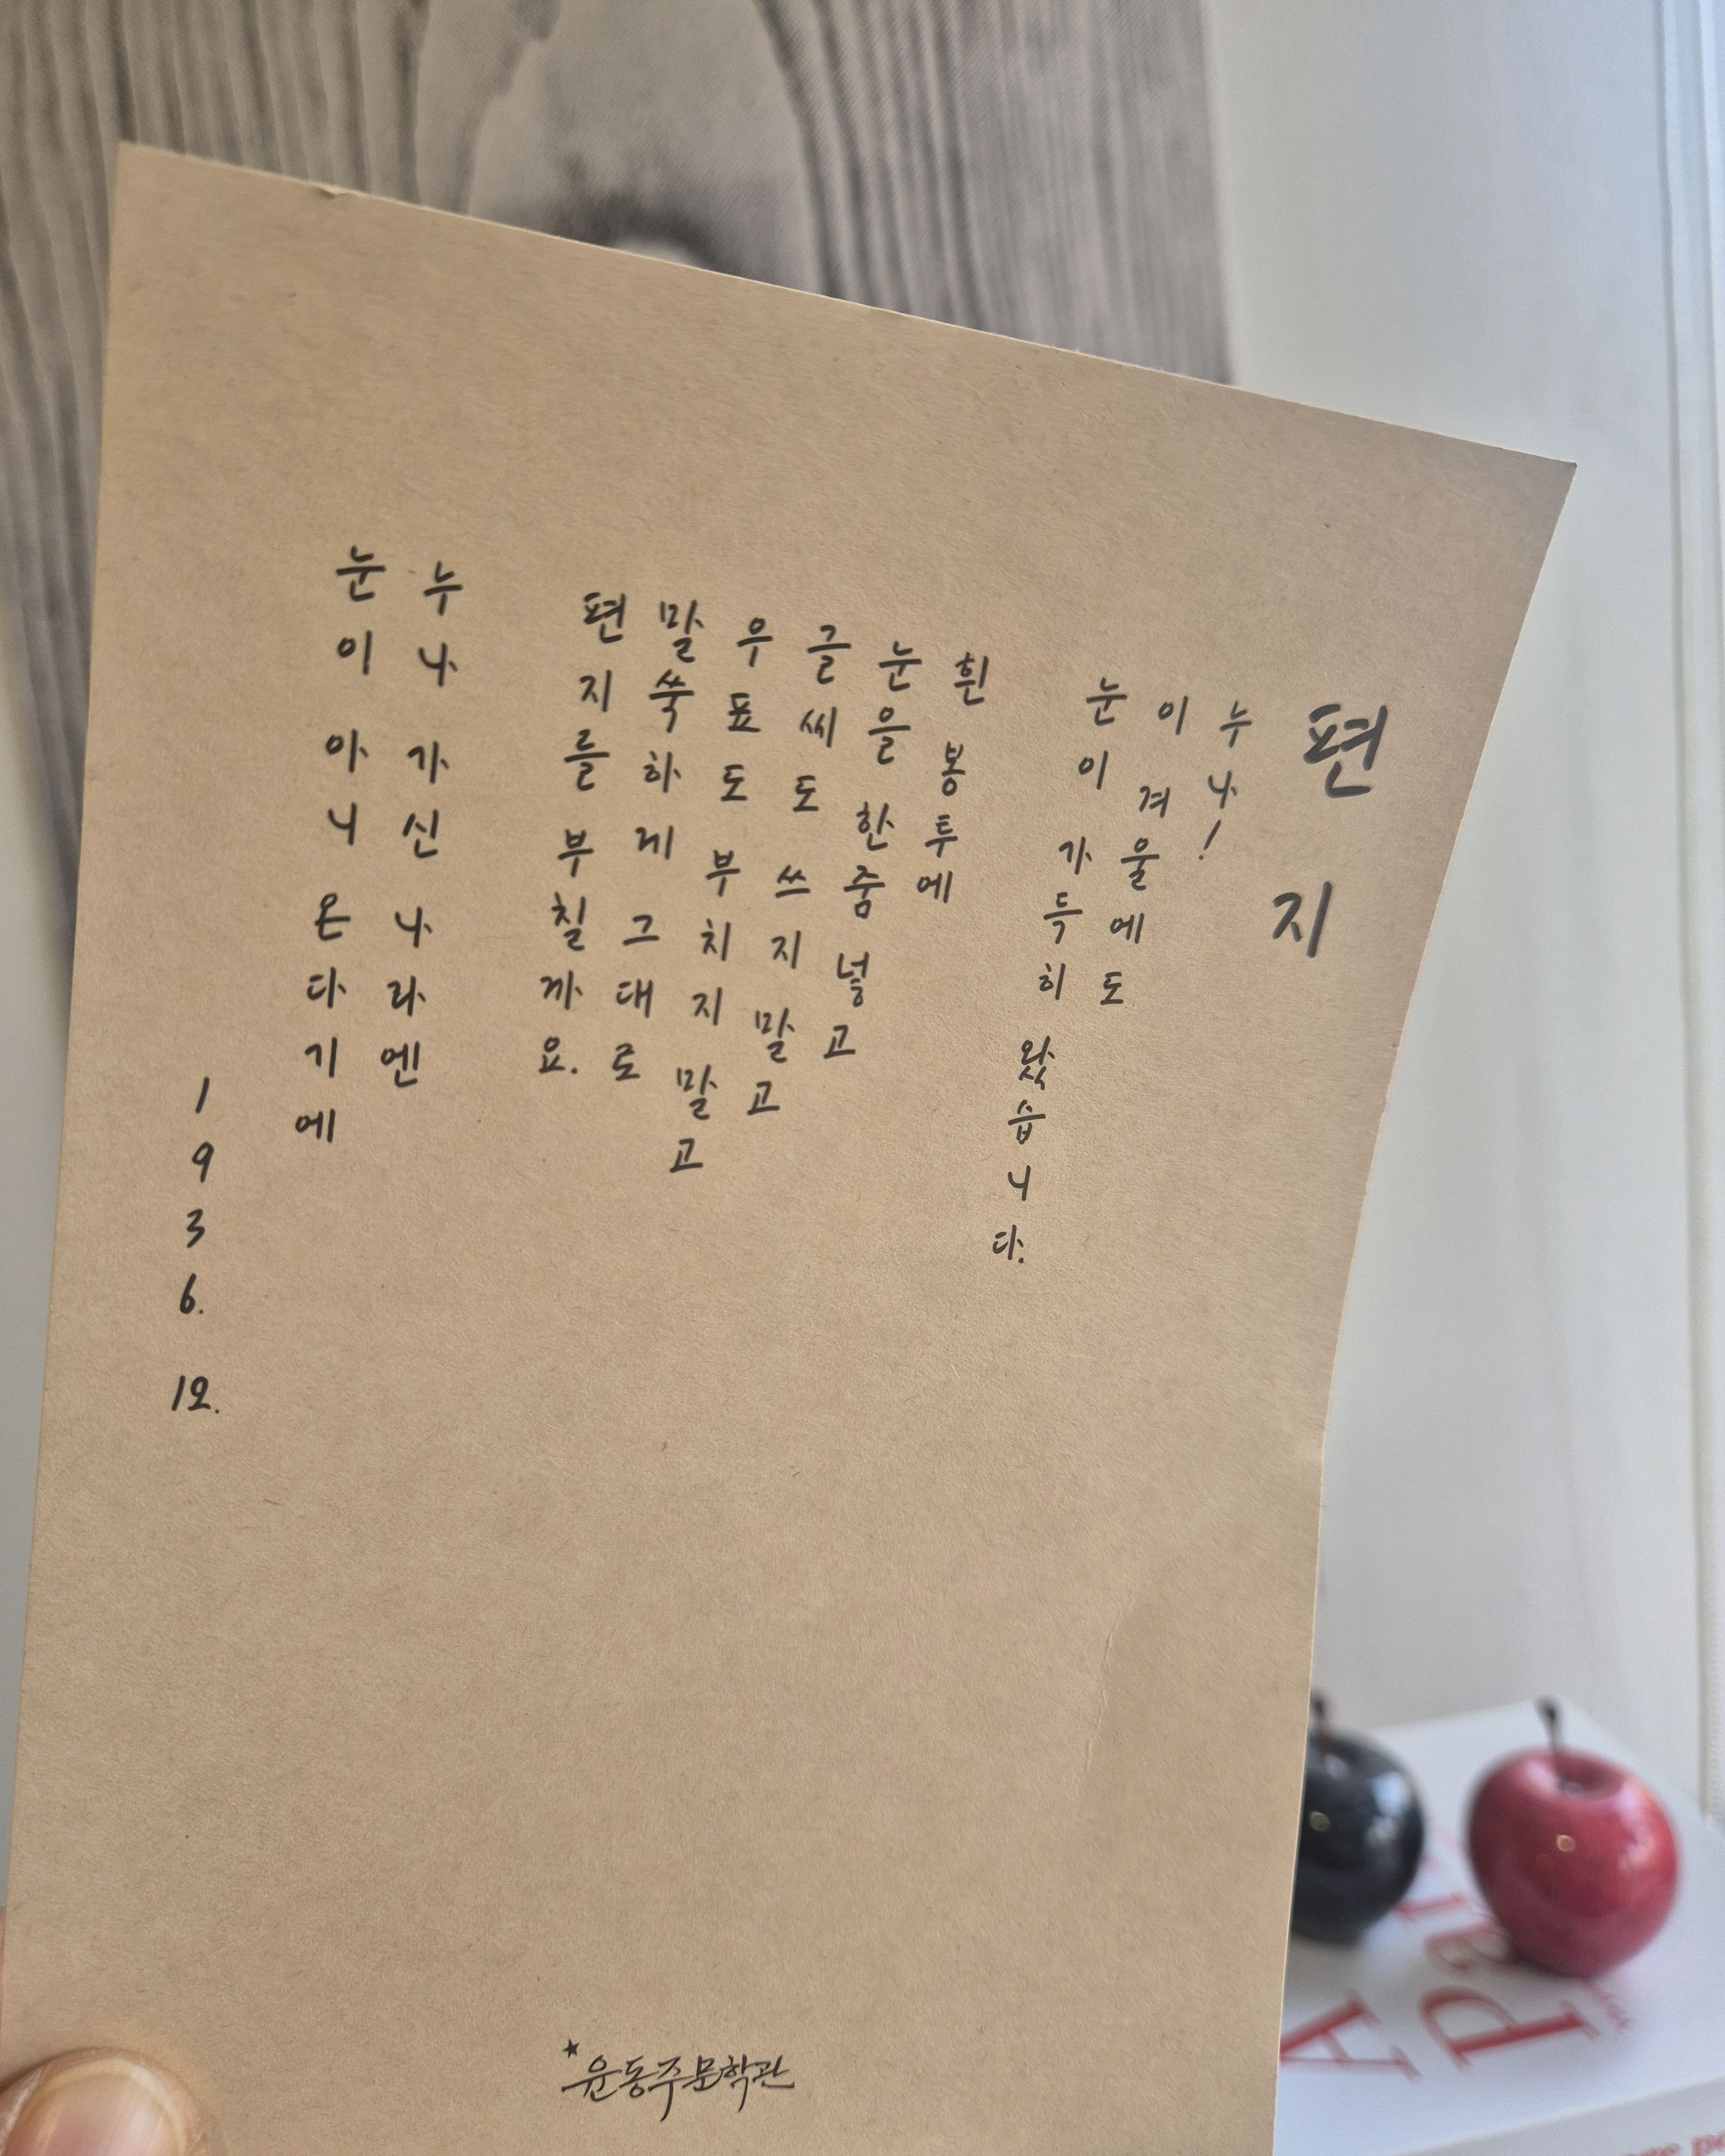 편지
누나!
이 겨울에도
눈이 가득히 왔습니다.
흰 봉투에
눈을 한줌 넣고
글씨도 쓰지 말고
우표도 부치지 말고
말쑥하게 그대로
편지를 부칠까요.
누나 가신 나라엔
눈이 아니 온다기에
1936. 12.
윤동주문학관
A
Pa